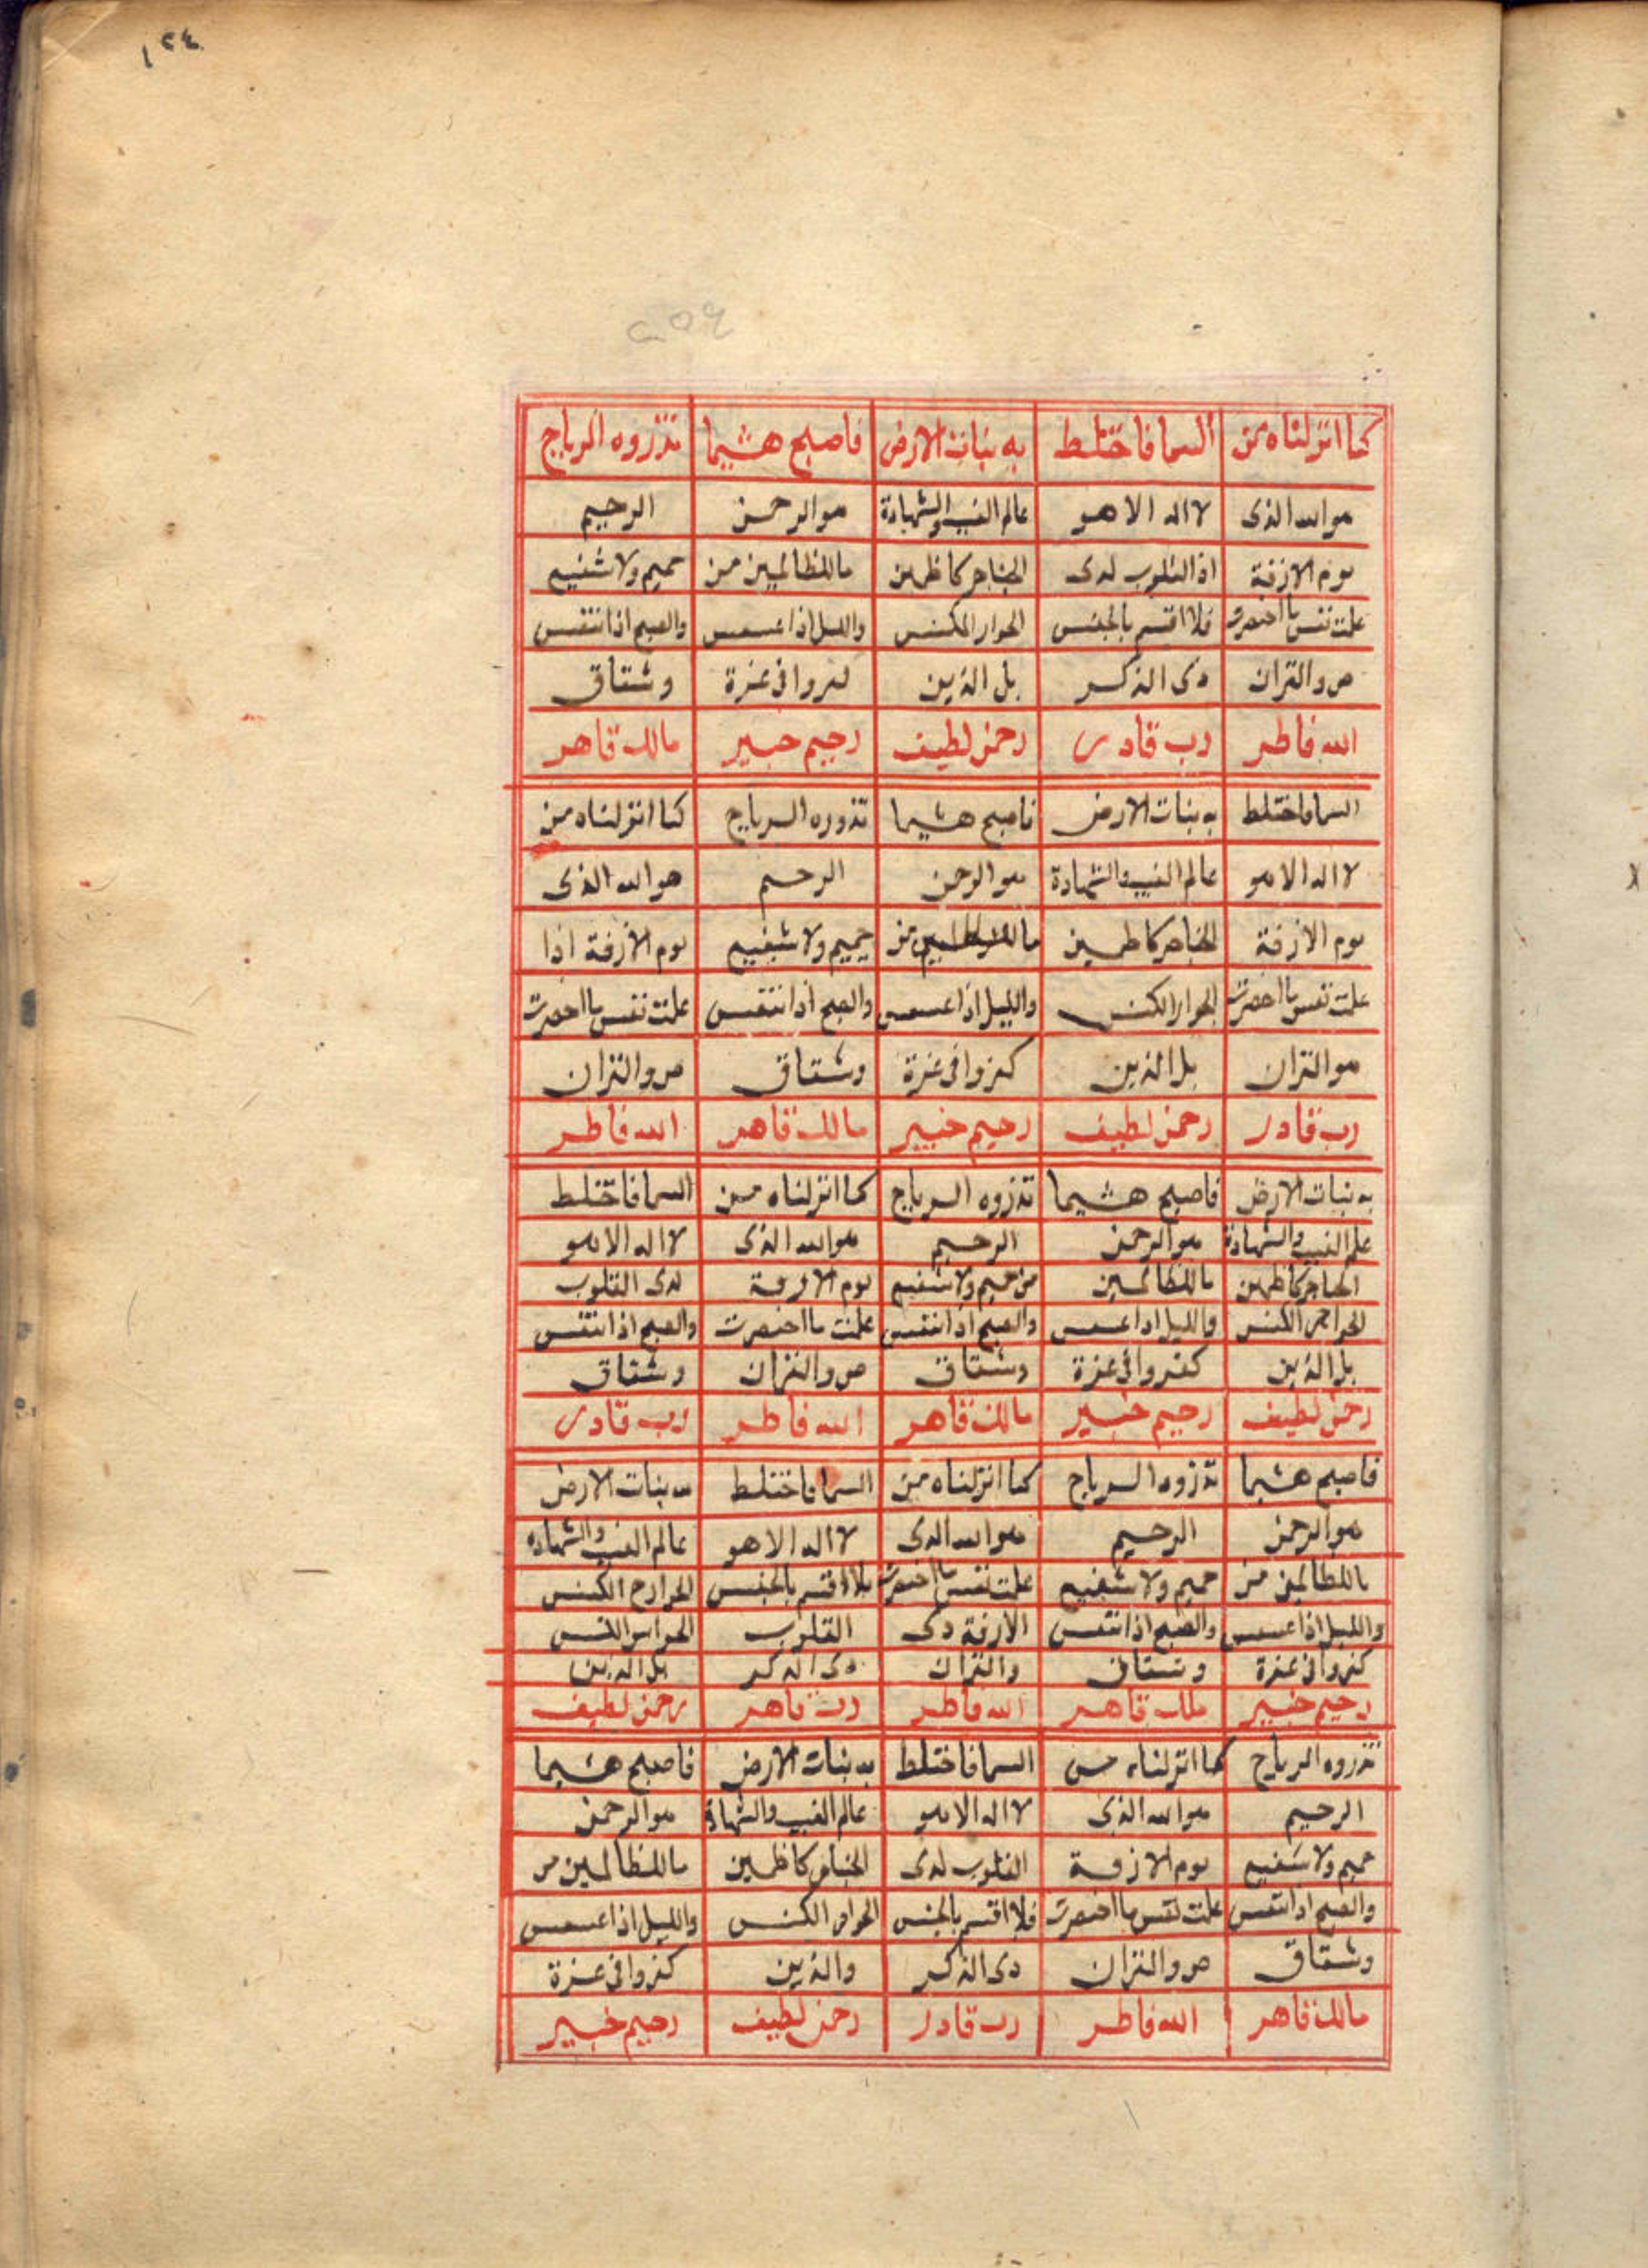 ١٢٤
كما انزلناه من السما فاختلط به نبات الارض فاصبح هشيما تذروه الرياح
هو الله الذى لا اله الا هو عالم الغيب والشهادة هو الرحمن الرحيم
يوم الازفة اذ القلوب لدى الحناجر كاظمين ما للظالمين من حميم ولا شفيع
علمت نفس ما احضرت فلا اقسم بالخنس الجوار الكنس والليل اذا عسعس والصبح اذا تنفس
ص والقران ذى الذكر بل الذين كفروا فى عزة وشقاق
الله فاطر رب قادر رحمن لطيف رحيم خبير مالك قاهر
السما فاختلط به نبات الارض فاصبح هشيما تذروه الرياح كما انزلناه من
لا اله الا هو عالم الغيب والشهادة هو الرحمن الرحيم هو الله الذى
يوم الازفة الحناجر كاظمين من حميم ولا شفيع يوم الازفة اذا
علمت نفس ما احضرت الجوار الكنس والليل اذا عسعس والصبح اذا تنفس علمت نفس ما احضرت
هو القران بل الذين كفروا فى عزة وشقاق ص والقران
رب قادر رحمن لطيف رحيم خبير مالك قاهر الله فاطر
به نبات الارض فاصبح هشيما تذروه الرياح كما انزلناه من السما فاختلط
علم الغيب والشهادة هو الرحمن الرحيم هو الله الذى لا اله الا هو
الحناجر كاظمين ما للظالمين من حميم ولا شفيع يوم الازفة لدى القلوب
الكنس والليل اذا عسعس والصبح اذا تنفس علمت ما احضرت والصبح اذا تنفس
بل الذين كفروا فى عزة وشقاق ص والقران وشقاق
رحمن لطيف رحيم خبير مالك قاهر الله فاطر رب قادر
فاصبح هشيما تذروه الرياح كما انزلناه من السما فاختلط به نبات الارض
هو الرحمن الرحيم هو الله الذى لا اله الا هو عالم الغيب والشهادة
ما للظالمين من حميم ولا شفيع علمت نفس ما احضرت فلا اقسم بالخنس الكنس
والليل اذا عسعس والصبح اذا تنفس الازفة دى القلوب الكنس
كفروا فى عزة وشقاق والقران ذى الذكر بل الذين
رحيم خبير ملك قاهر الله فاطر رب قاهر رحمن لطيف
تذروه الرياح كما انزلناه من السما فاختلط به نبات الارض فاصبح هشيما
الرحيم هو الله الذى لا اله الا هو عالم الغيب والشهادة هو الرحمن
حميم ولا شفيع يوم الازفة القلوب لدى الحناجر كاظمين ما للظالمين من
والصبح اذا تنفس علمت نفس ما احضرت فلا اقسم بالخنس الجوار الكنس والليل اذا عسعس
وشقاق ص والقران ذى الذكر والذين كفروا فى عزة
مالك قاهر الله فاطر رب قادر رحمن لطيف رحيم خبير